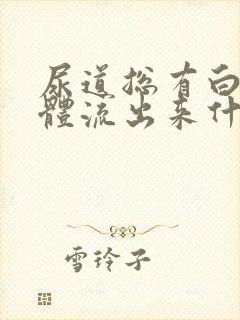 尿道总有白
體流出来什
雪玲子